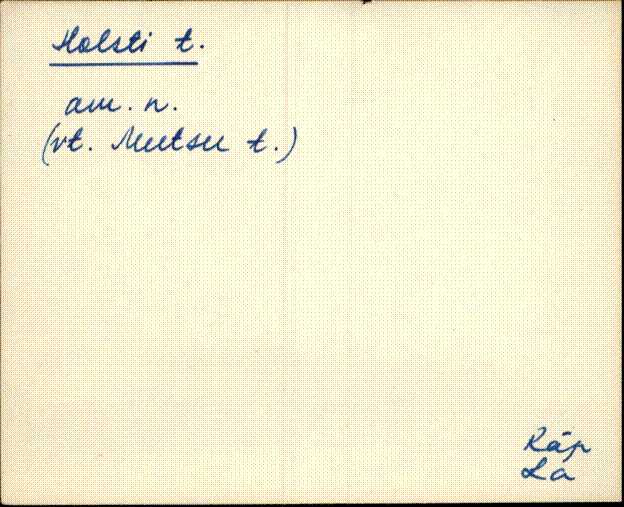 Holsti t.
am. n.
(vt. Mutsu t.)
Räp
La